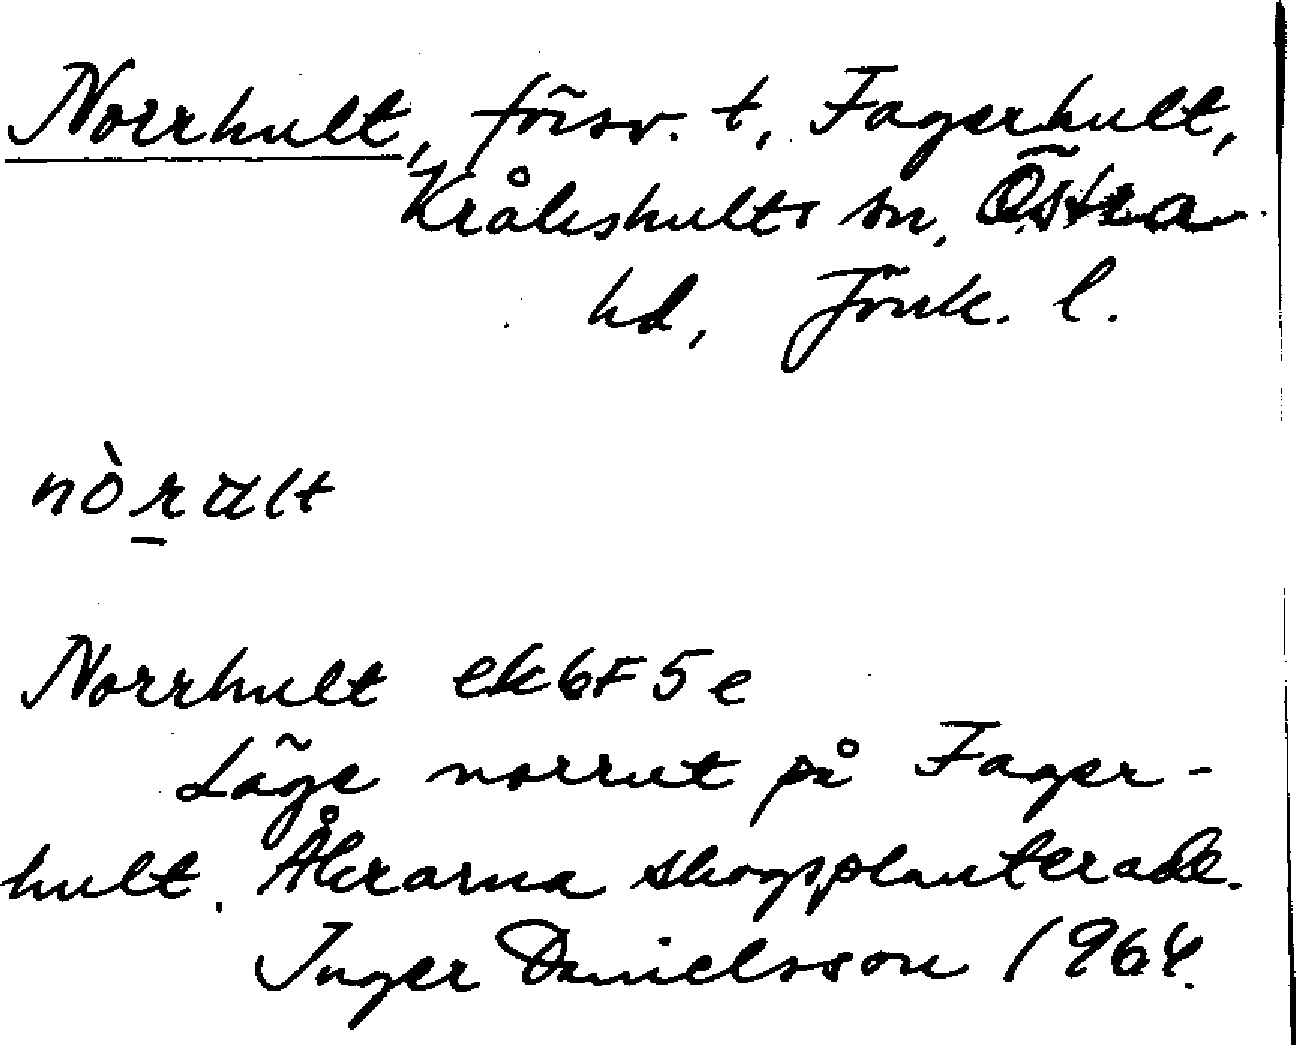 Norrhult, försv. t. Fagerhult,
Kråkshults sn, Östra
hd, Jönk. l.
nòrult
Norrhult ekbF5e
Läge norrut på Fager-
hult. Åkrarna skogsplanterade.
Inger Danielsson 1964.